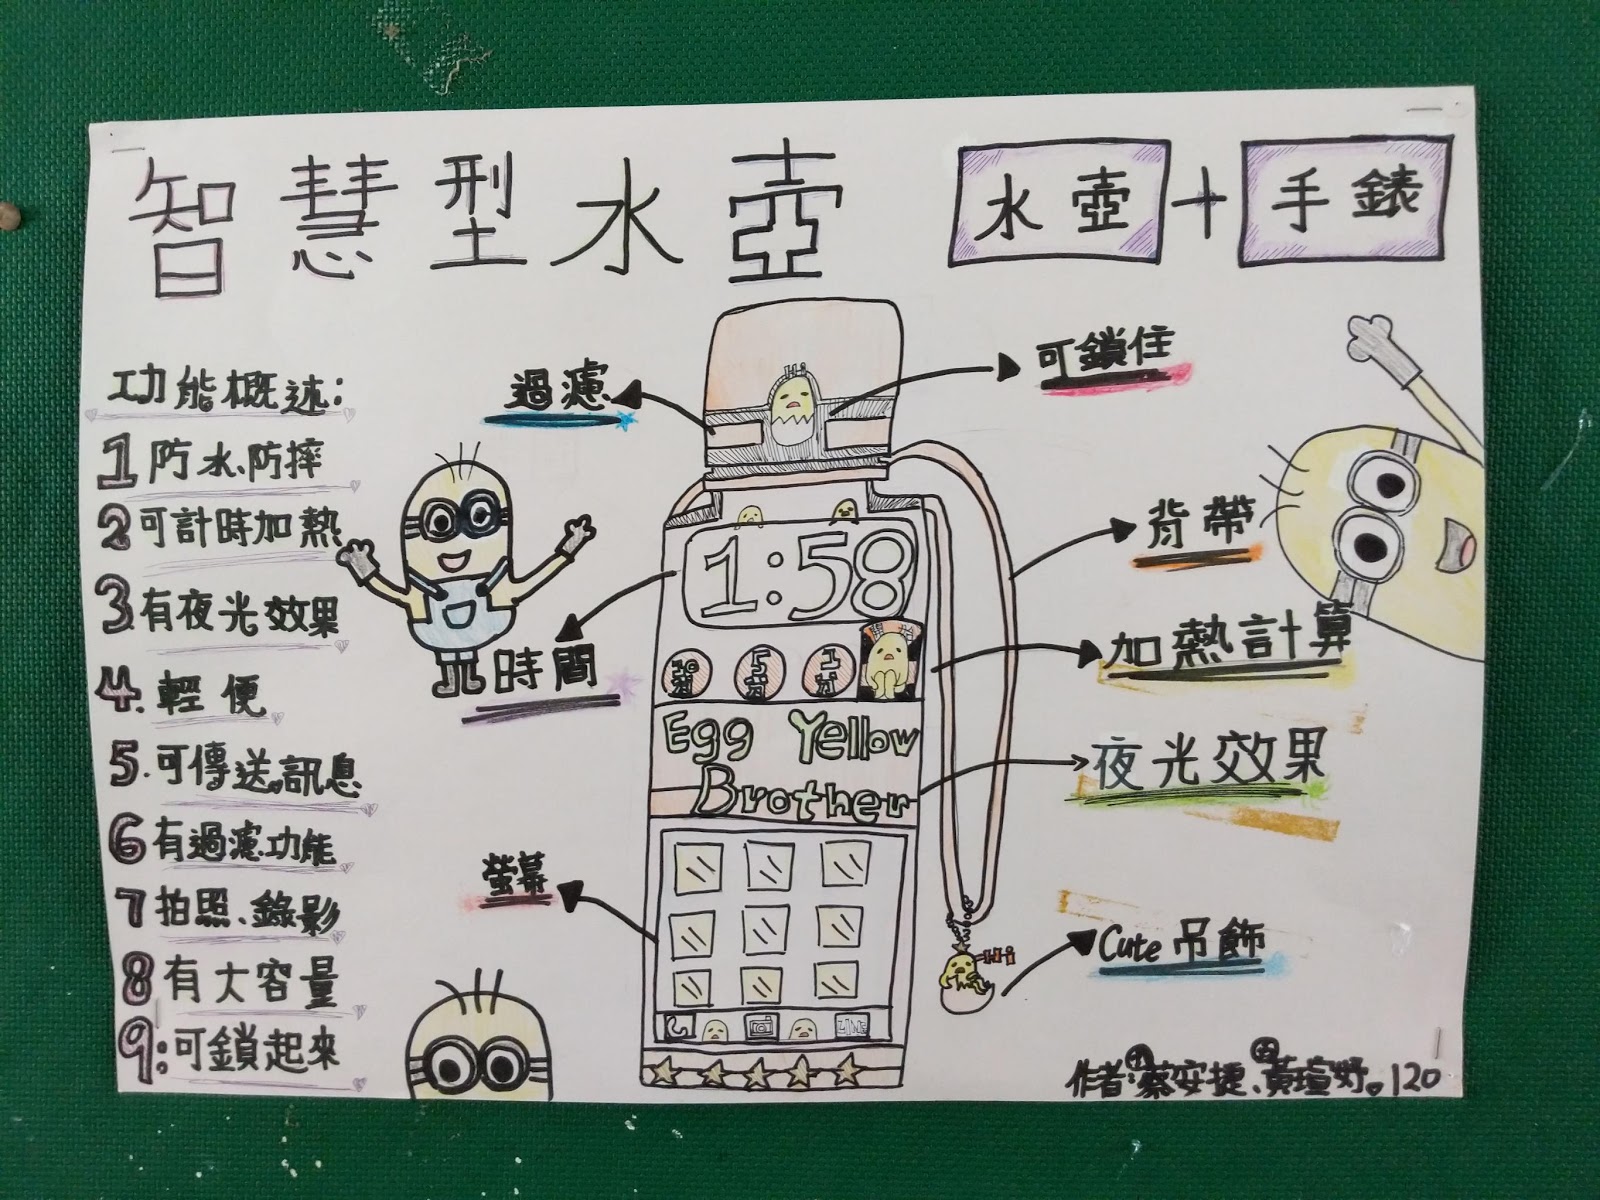 智慧型水壺
水壺+手錶
功能概述:
1防水、防摔
2可計時加熱
3.有夜光效果
4.輕便
5.可傳送訊息
6有過濾功能
7拍照、錄影
8有大容量
9:可鎖起來
過濾
可鎖住
Hi
背帶
1:58
時間
10分
5分
1分
開始
加熱計算
Egg Yellow
Brother
夜光效果
螢幕
LINE
Hi
Cute吊飾
作者:蔡安捷、黃瑄妤。120